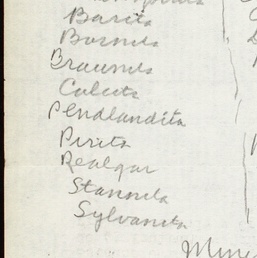 Barita
Bornita
Braunita
Calcita
Pendlandita
Pirita
Realgar
Stannita
Sylvanita